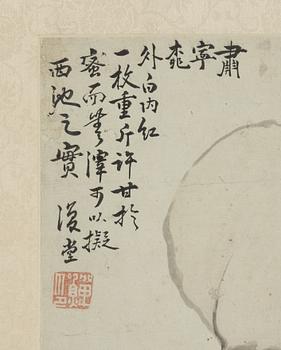 肅
寧
桃
外白内紅
一枚重斤許甘於
蜜而芳澤可以擬
西池之實 復堂